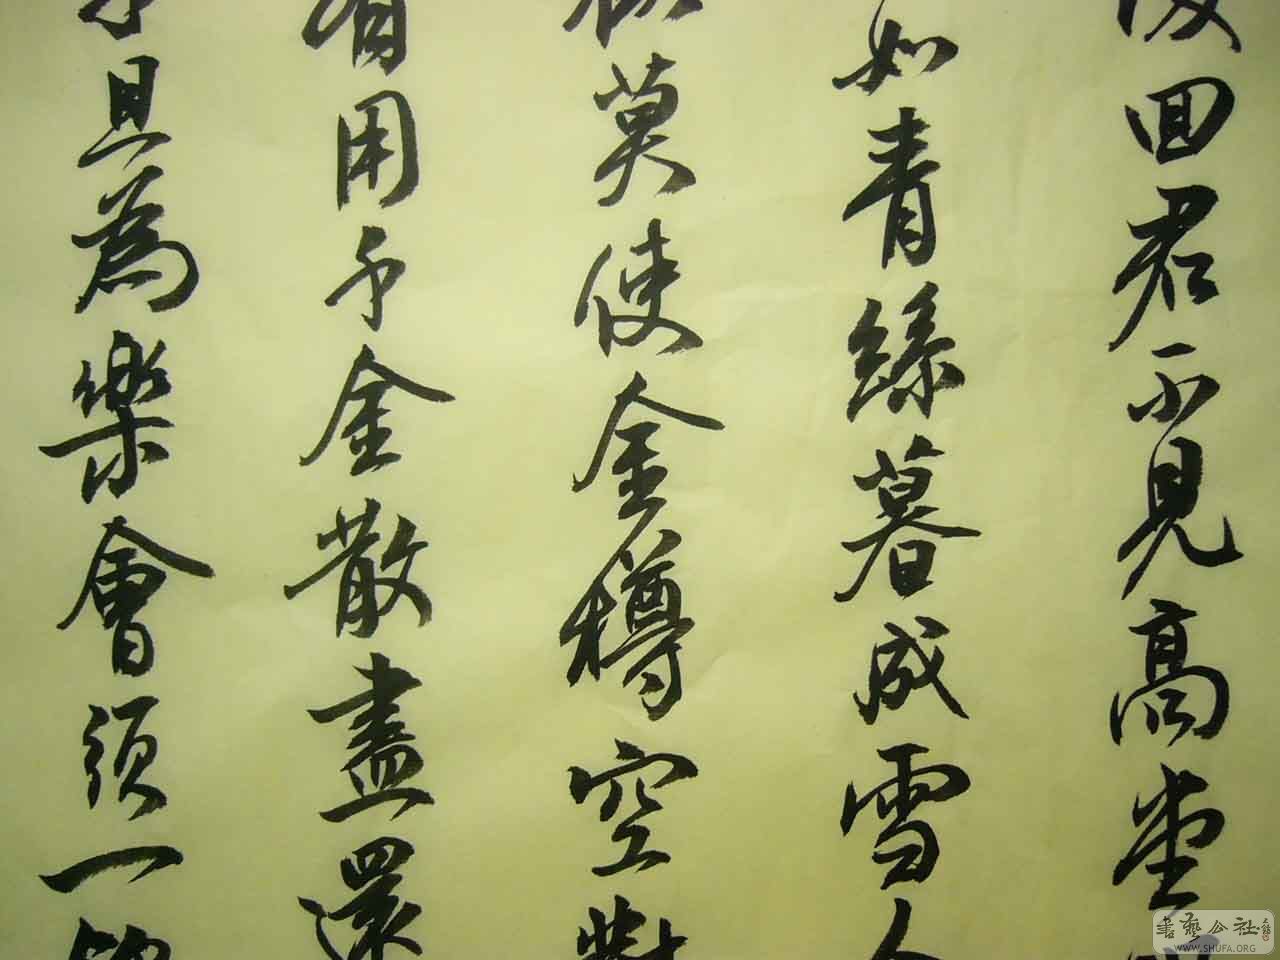 回君不見高堂
如青絲暮成雪人
莫使金樽空對
有用千金散盡還
且為樂會須一
書藝公社
WWW.SHUFA.ORG